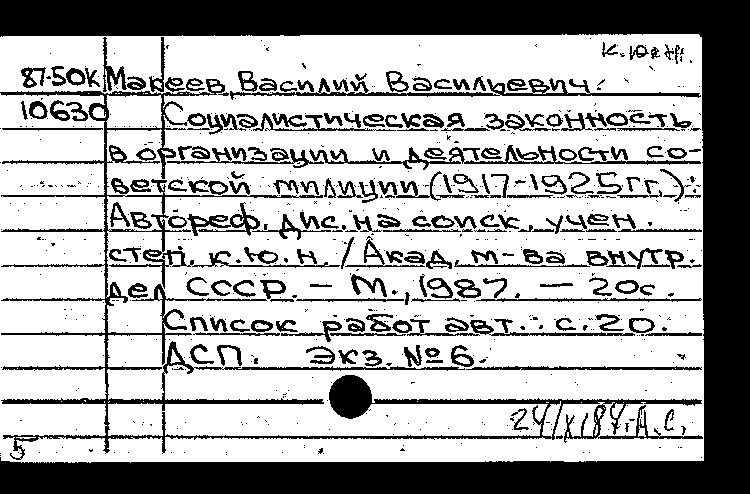 К.Ю.Н.
87-50К Макеев, Василий Васильевич.
10630 Социалистическая законность
в организации и деятельности со-
ветской милиции (1917-1925 гг.):
Автореф. дис. на соиск. учен.
степ. к.ю.н. / Акад. м-ва внутр.
дел СССР. — М., 1987. — 20с.
Список работ авт.: с. 20.
ДСП. Экз. №6.
24/X 184. А.С.
5